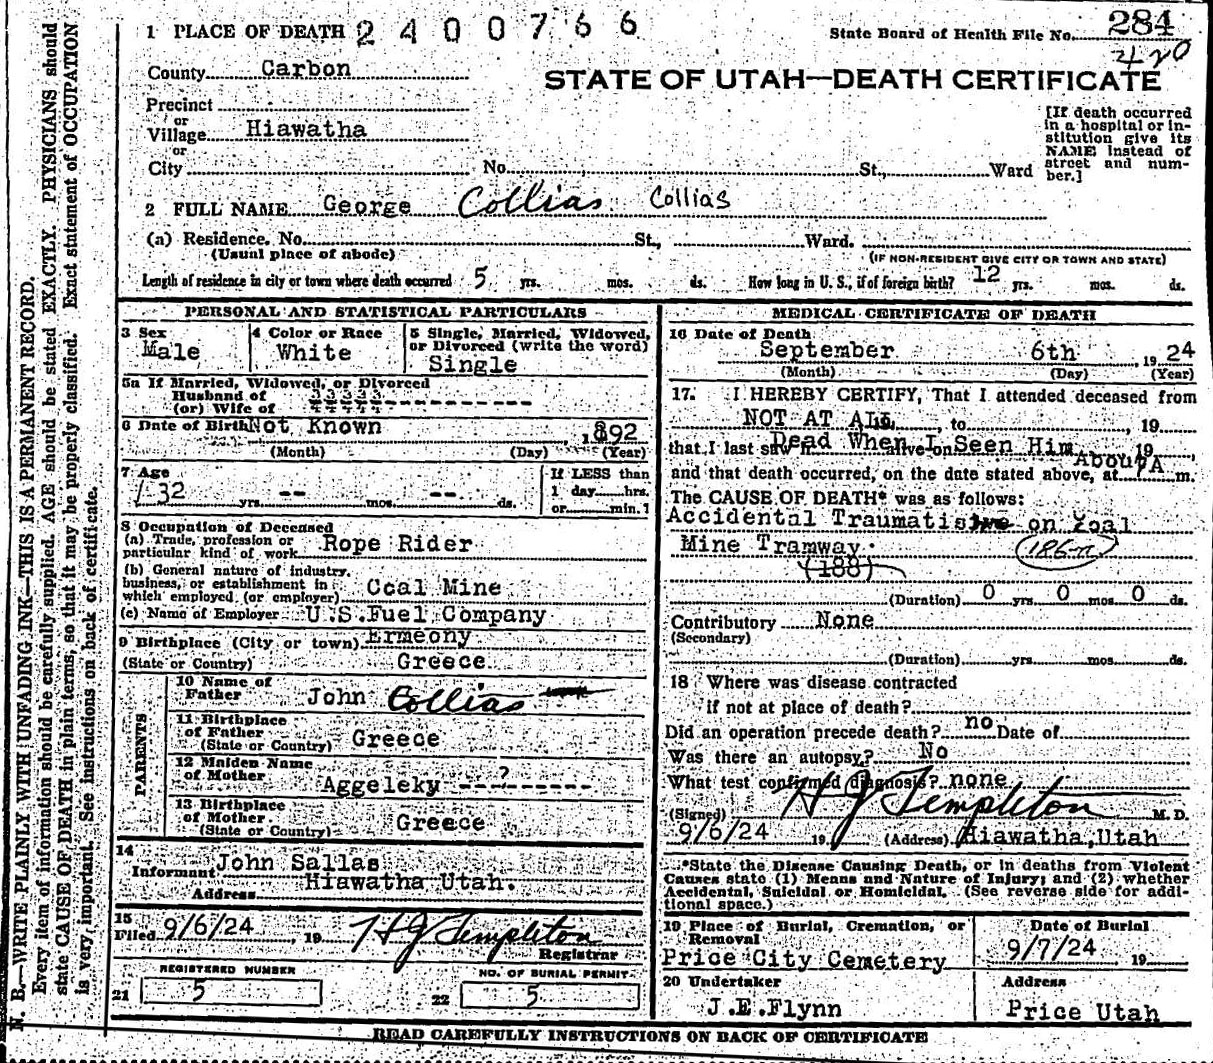 1 PLACE OF DEATH 2400766
State Board of Health File No. 284
420
County Carbon
STATE OF UTAH—DEATH CERTIFICATE
Precinct
or
Village Hiawatha
or
City No. St., Ward
[If death occurred
in a hospital or in-
stitution give its
NAME instead of
street and num-
ber.]
2 FULL NAME George Collias Collias
(a) Residence. No. St., Ward.
(Usual place of abode) (IF NON-RESIDENT GIVE CITY OR TOWN AND STATE)
Length of residence in city or town where death occurred 5 yrs. mos. ds. How long in U. S., if of foreign birth? 12 yrs. mos. ds.
PERSONAL AND STATISTICAL PARTICULARS
3 Sex
Male
4 Color or Race
White
5 Single, Married, Widowed,
or Divorced (write the word)
Single
5a If Married, Widowed, or Divorced
Husband of
(or) Wife of
6 Date of Birth Not Known , 1892
(Month) (Day) (Year)
7 Age
32 yrs. -- mos. -- ds.
If LESS than
1 day hrs.
or min.]
8 Occupation of Deceased
(a) Trade, profession or
particular kind of work Rope Rider
(b) General nature of industry,
business, or establishment in
which employed (or employer) Coal Mine
(c) Name of Employer U.S.Fuel Company
9 Birthplace (City or town) Ermeony
(State or Country) Greece
PARENTS
10 Name of
Father John Collias
11 Birthplace
of Father
(State or Country) Greece
12 Maiden Name
of Mother Aggeleky ----?---------
13 Birthplace
of Mother
(State or Country) Greece
14
Informant John Sallas
Address Hiawatha Utah.
15
Filed 9/6/24, 19 H J Templeton
Registrar
REGISTERED NUMBER
21 5
NO. OF BURIAL PERMIT
22 5
MEDICAL CERTIFICATE OF DEATH
16 Date of Death
September 6th , 1924
(Month) (Day) (Year)
17. I HEREBY CERTIFY, That I attended deceased from
NOT AT ALL , to , 19
that I last saw h Dead When I Seen Him alive on , 19
and that death occurred, on the date stated above, at About A m.
The CAUSE OF DEATH* was as follows:
Accidental Traumatism on Coal
Mine Tramway. (186-n)
(188)
(Duration) 0 yrs. 0 mos. 0 ds.
Contributory None
(Secondary)
(Duration) yrs. mos. ds.
18 Where was disease contracted
if not at place of death?
Did an operation precede death? no Date of
Was there an autopsy? No
What test confirmed diagnosis? none
(Signed) H J Templeton M. D.
9/6/24 19 (Address) Hiawatha,Utah
*State the Disease Causing Death, or in deaths from Violent
Causes state (1) Means and Nature of Injury; and (2) whether
Accidental, Suicidal or Homicidal. (See reverse side for addi-
tional space.)
19 Place of Burial, Cremation, or
Removal
Price City Cemetery
Date of Burial
9/7/24 19
20 Undertaker
J.E.Flynn
Address
Price Utah
READ CAREFULLY INSTRUCTIONS ON BACK OF CERTIFICATE
N. B.—WRITE PLAINLY WITH UNFADING INK—THIS IS A PERMANENT RECORD.
Every item of information should be carefully supplied. AGE should be stated EXACTLY. PHYSICIANS should
state CAUSE OF DEATH in plain terms, so that it may be properly classified. Exact statement of OCCUPATION
is very important. See instructions on back of certificate.